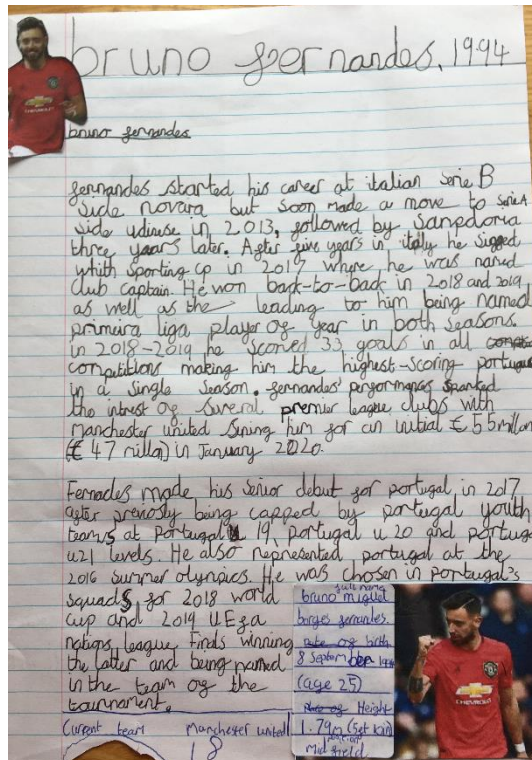 bruno fernandes. 1994
bruno fernandes
fernandes started his career at italian serie B
side novara but soon made a move to serie A
side udinese in 2013, followed by Sanpdoria
three years later. After five years in italy he sigged
whith sporting cp in 2017 where he was named
club captain. He won back-to-back in 2018 and 2019,
as well as the leading to him being named
primeira liga, player of year in both seasons.
in 2018-2019 he scorved 33 goals in all
competitions making him the highest-scoring portugues
in a single season. fernandes' performances sparked
the intrest of Several premier league clubs with
Manchester united sining him for an initial € 55 millon
(£ 47 milla) in January 2020.
Fernades made his senior debut for portugal in 2017
after previosly being capped by portugal youth
teams at portugal u 19, portugal u 20 and portuga
u21 levels. He also represented portugal at the
2016 summer olympics. He was chosen in portugal's
squads for 2018 world
cup and 2019 UEfa
nations league finals winning
the latter and being named
in the team of the
tournament.
full name
bruno miguel
borges fernandes
Date of birth
8 September 1994
(age 25)
Height
1.79m (5ft 10in)
place of
mid field
Current team Manchester united
18
CHEVROLET
CHEVROLET